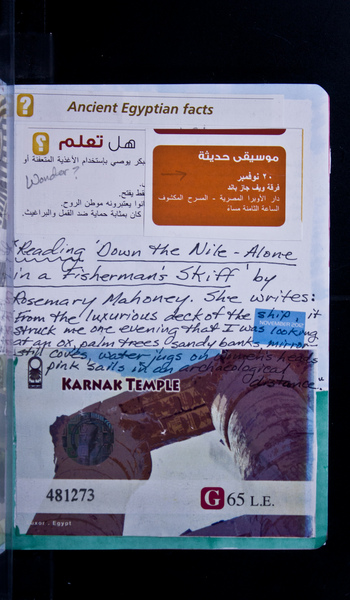 Ancient Egyptian facts
هل تعلم
بكر يوصي بإستخدام الأغذية المتعفنة أو
Wonder?
بفتح.
انوا يعتبرونه موطن الروح.
كان بمثابة حماية ضد القمل والبراغيث.
موسيقى حديثة
٢٠ نوفمبر
فرقة ويف جاز باند
دار الأوبرا المصرية - المسرح المكشوف
الساعة الثامنة مساءً
Reading 'Down the Nile - Alone
in a Fisherman's Skiff' by
Rosemary Mahoney. She writes:
from the luxurious deck of the ship, it
NOVEMBER 2010
struck me one evening that I was looking
at an ox, palm trees sandy banks, mirror
still coves, water jugs on women's heads
pink sails in an archaeological
distance.
KARNAK TEMPLE
481273
G 65 L.E.
Luxor - Egypt